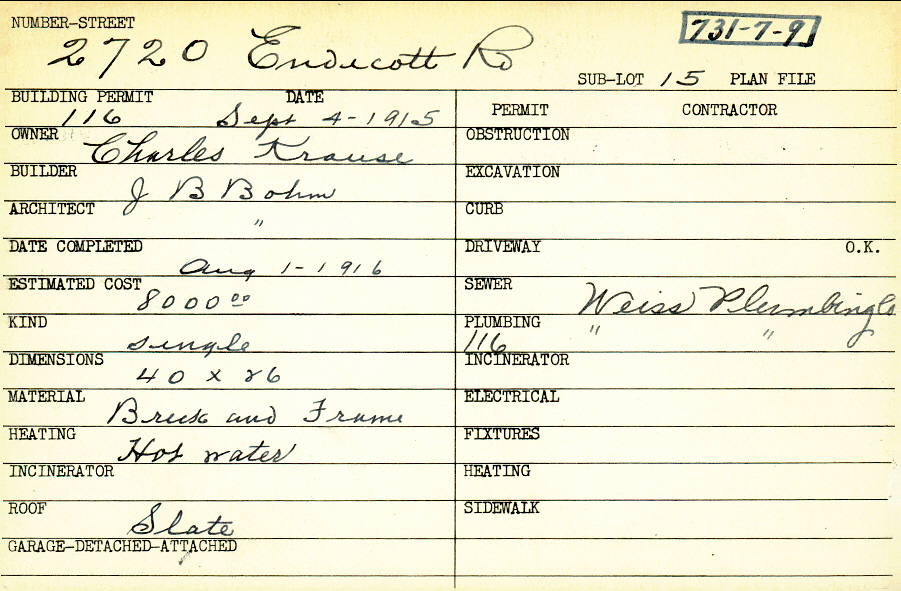 NUMBER-STREET
2720 Endicott Rd
731-7-9
SUB-LOT 15 PLAN FILE
BUILDING PERMIT DATE
116 Sept 4-1915
OWNER
Charles Krause
BUILDER
J B Bohm
ARCHITECT
"
DATE COMPLETED
Aug 1-1916
ESTIMATED COST
8000 00
KIND
single
DIMENSIONS
40 x 26
MATERIAL
Brick and Frame
HEATING
Hot water
INCINERATOR
ROOF
Slate
GARAGE-DETACHED-ATTACHED
PERMIT CONTRACTOR
OBSTRUCTION
EXCAVATION
CURB
DRIVEWAY O.K.
SEWER
Weiss Plumbing Co
PLUMBING " "
116
INCINERATOR
ELECTRICAL
FIXTURES
HEATING
SIDEWALK